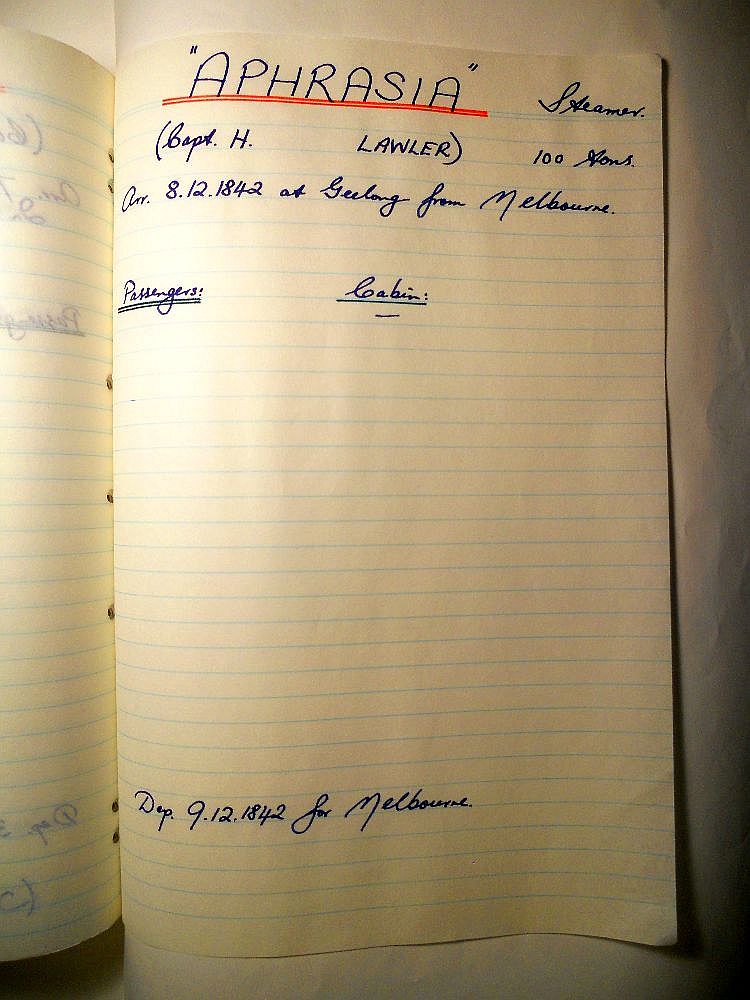 "APHRASIA" Steamer.
(Capt. H. LAWLER) 100 tons.
Arr. 8.12.1842 at Geelong from Melbourne.
Passengers: Cabin:
—
Dep. 9.12.1842 for Melbourne.